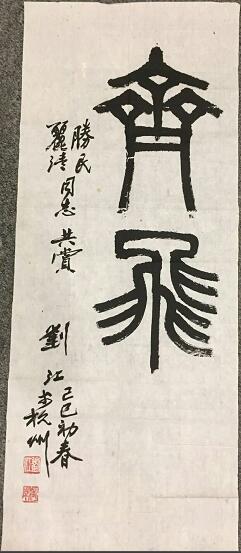 齊飛
勝民
麗清同志共賞
己巳初春
劉江於杭州